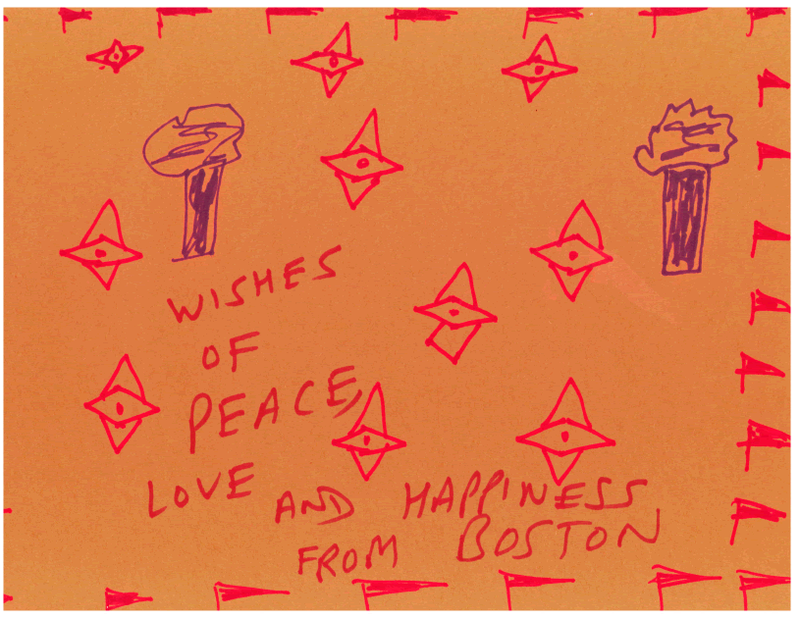 WISHES
OF
PEACE,
LOVE AND HAPPINESS
FROM BOSTON